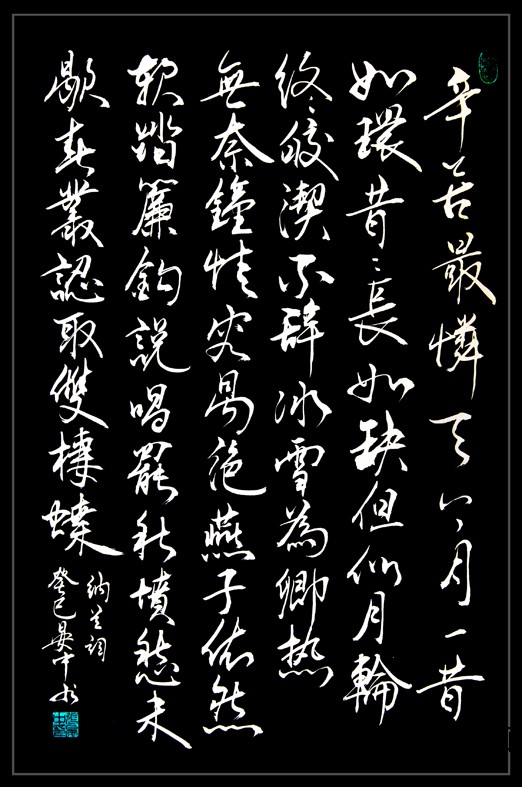 辛苦最憐天上月一昔
如環昔〻長如玦但似月輪
終皎潔不辭冰雪為卿热
無奈鐘情容易絕燕子依然
軟踏簾鈎說唱罷秋墳愁未
歇春叢認取雙棲蝶
納兰詞
癸巳晏中书